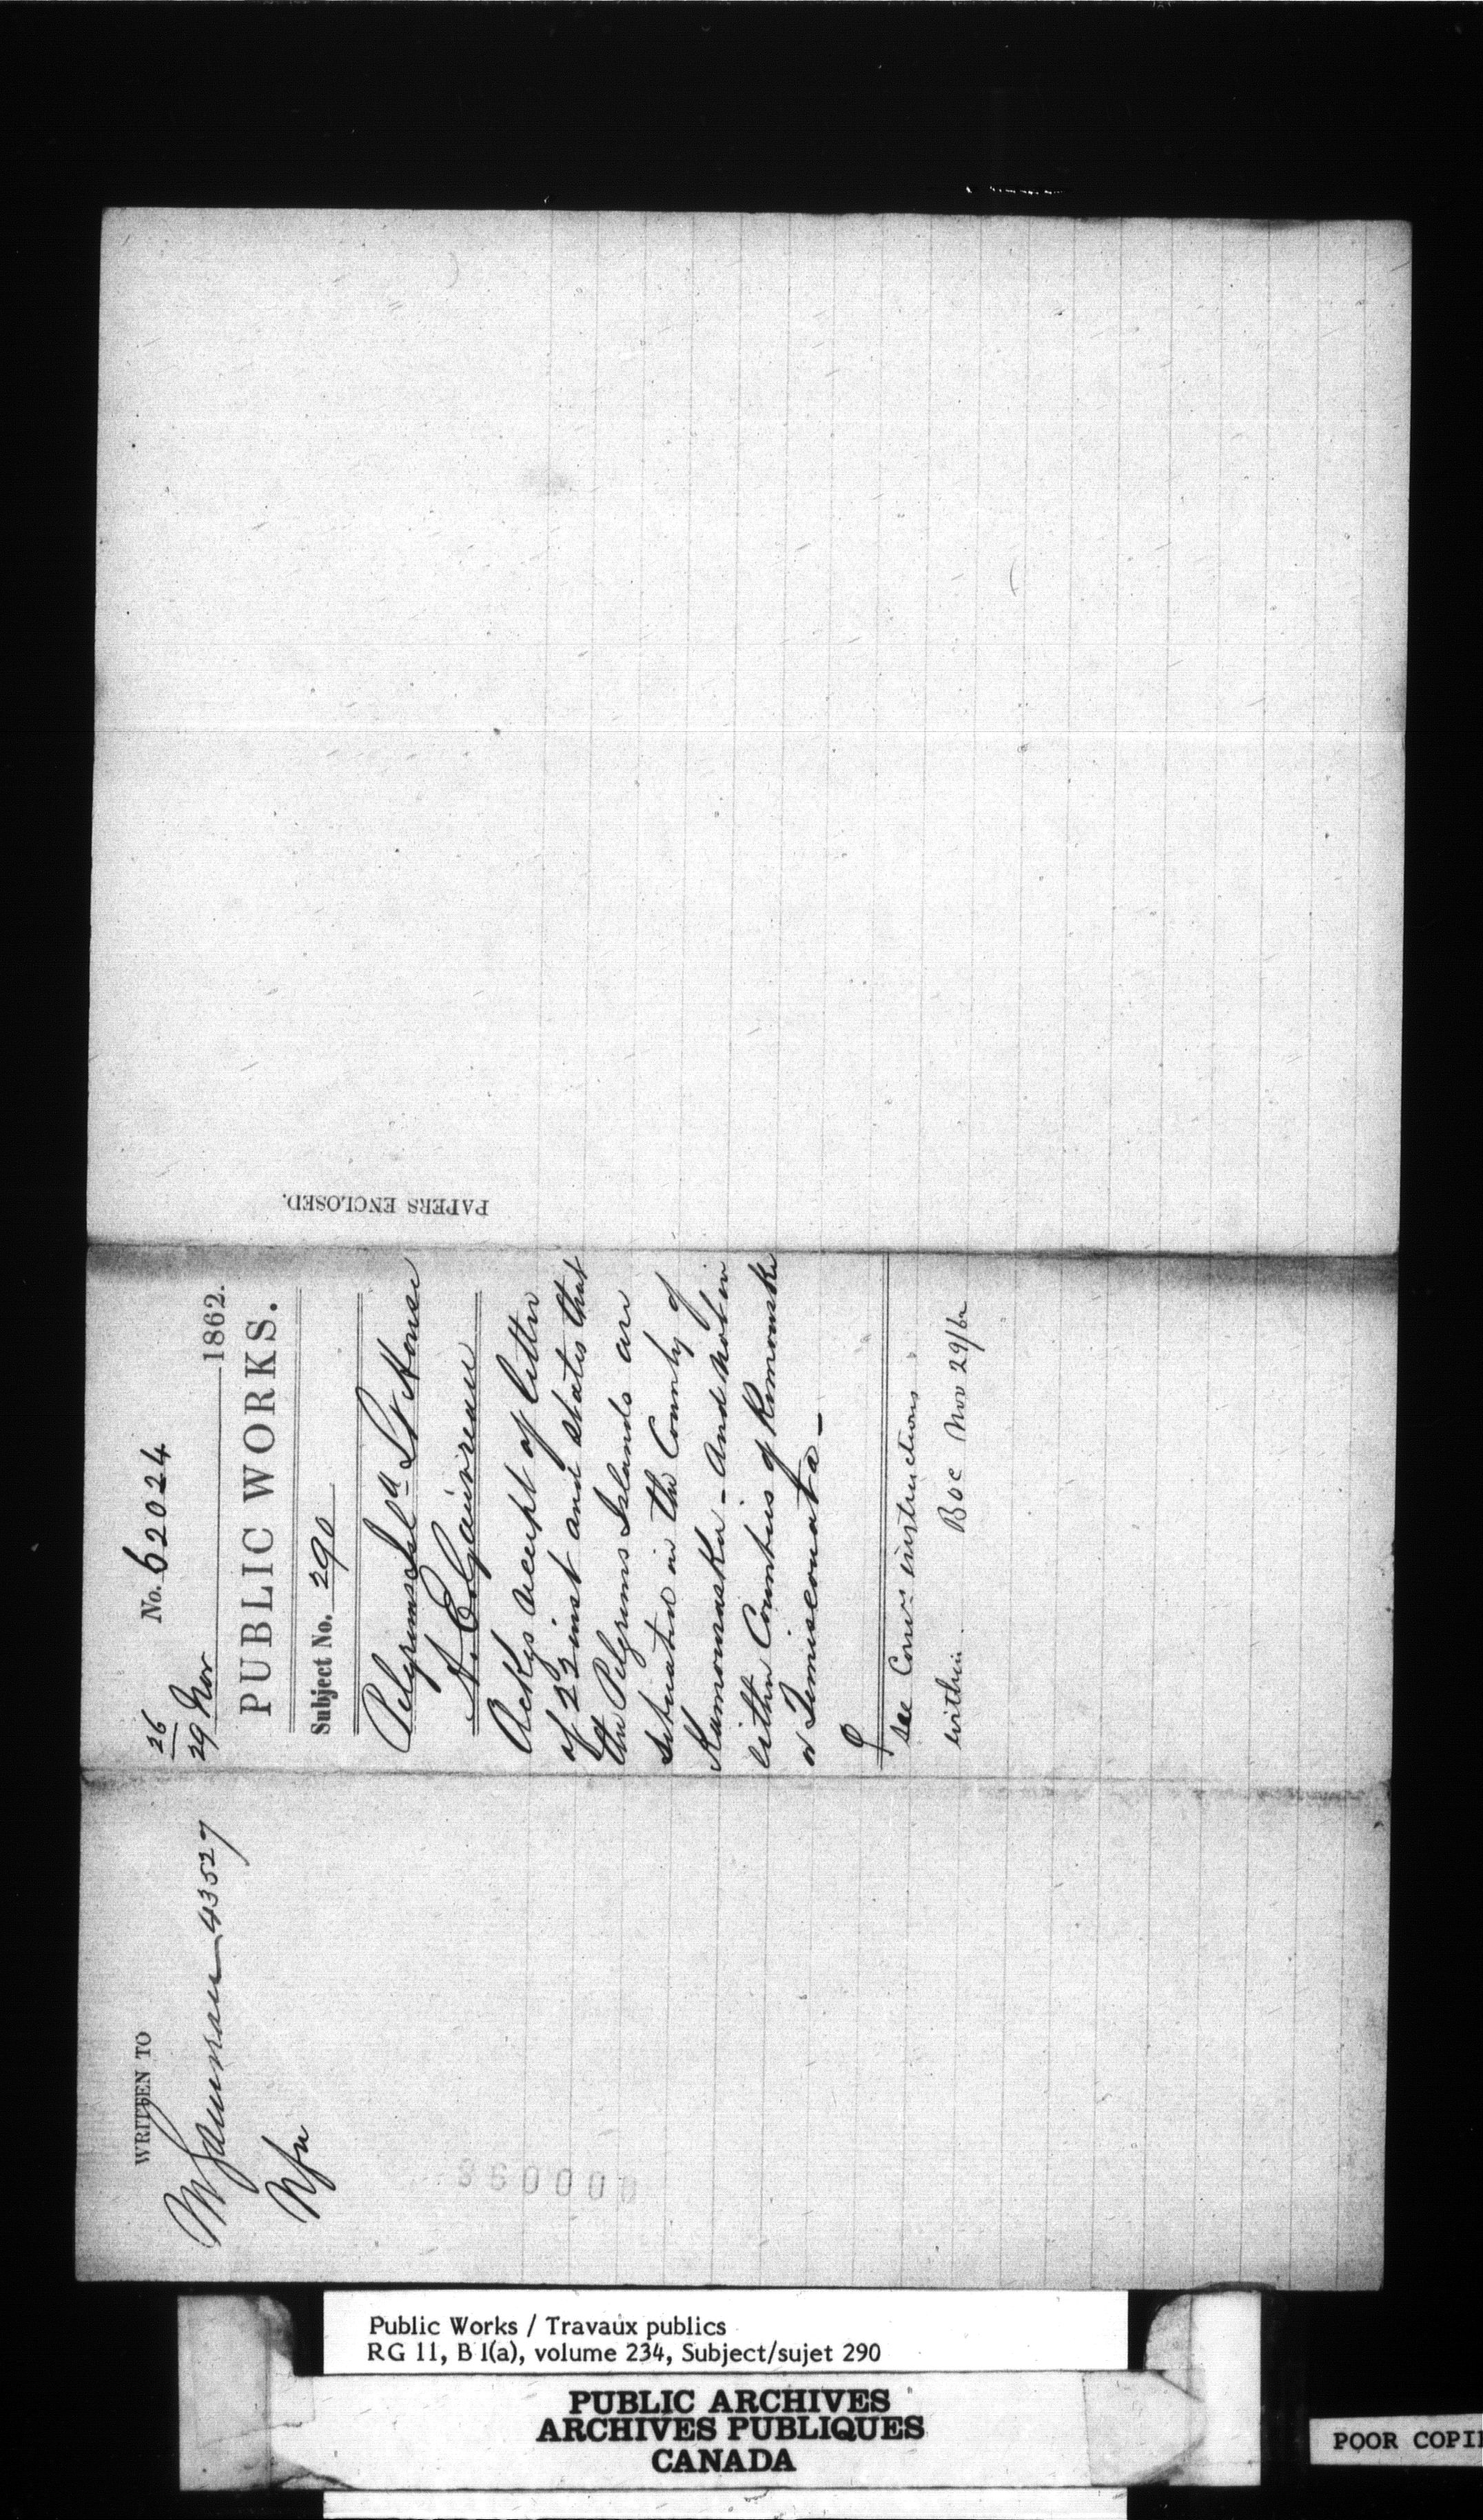 WRITTEN TO
43527
26
29 Nov
No. 62024
1862.
PUBLIC WORKS.
Subject No. 290
Pilgrims Isld Lt House
Gauvreau
Ackgs receipt of letter
of 22 inst and states that
the Pilgrims Islands are
situated in the County of
Kamouraska - And not in
either Counties of Rimouski
or Temiscouata -
see Comrs instructions
within Nov 29/62
PAPERS ENCLOSED.
Public Works / Travaux publics
RG 11, B 1(a), volume 234, Subject/sujet 290
PUBLIC ARCHIVES
ARCHIVES PUBLIQUES
CANADA
POOR COPI